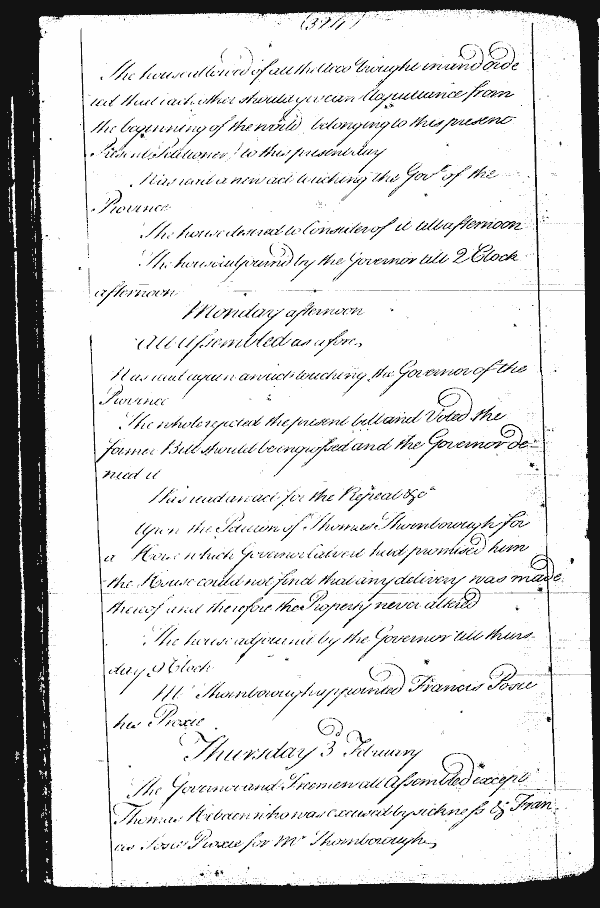 (324)
The house allowed of all the Accots brought in and orde
red that each other should give an Acquittance from
the beginning of the world belonging to this present
to this present day
Was read a new act touching the Govt of the
Province
The house desired to Consider of it till afternoon
The house adjourned by the Governor till 2 Clock
afternoon
Monday afternoon
All Assembled as afore,
Was read again an act touching the Governor of the
Province
The whole rejected the present bill and Voted the
former Bill should be ingrossed and the Governor de=
nied it
Was read an act for the Repeal &c
Upon the Petition of Thomas Thornborough for
a House which Governor Calvert had promised him
the House could not find that any delivery was made
thereof and therefore the Property never altered
The house adjourned by the Governor till thurs
day 9 Clock
Mr Thornborough appointed Francis Posie
his Proxie
Thursday 3d February
The Governor and Freemen all Assembled except
Thomas Hebden who was excused by sickness & Fran
as Posie Proxie for Mr Thornborough,